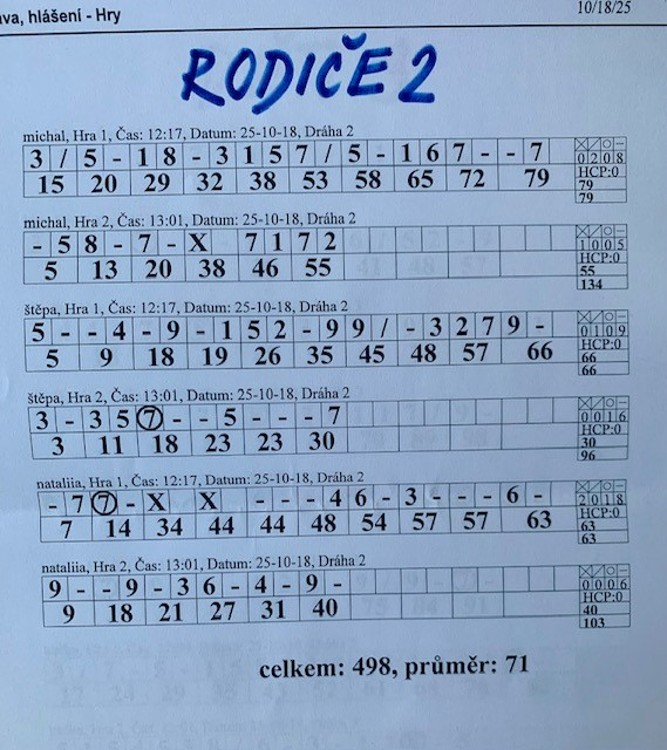 ava, hlášení - Hry 10/18/25
RODIČE 2
michal, Hra 1, Čas: 12:17, Datum: 25-10-18, Dráha 2
3 / 5 - 1 8 - 3 1 5 7 / 5 - 1 6 7 - - 7
15 20 29 32 38 53 58 65 72 79
X / O -
0 2 0 8
HCP:0
79
79
michal, Hra 2, Čas: 13:01, Datum: 25-10-18, Dráha 2
- 5 8 - 7 - X 7 1 7 2
5 13 20 38 46 55
X / O -
1 0 0 5
HCP:0
55
134
štěpa, Hra 1, Čas: 12:17, Datum: 25-10-18, Dráha 2
5 - - 4 - 9 - 1 5 2 - 9 9 / - 3 2 7 9 -
5 9 18 19 26 35 45 48 57 66
X / O -
0 1 0 9
HCP:0
66
66
štěpa, Hra 2, Čas: 13:01, Datum: 25-10-18, Dráha 2
3 - 3 5 ⑦ - - 5 - - - 7
3 11 18 23 23 30
X / O -
0 0 1 6
HCP:0
30
96
nataliia, Hra 1, Čas: 12:17, Datum: 25-10-18, Dráha 2
- 7 ⑦ - X X - - - 4 6 - 3 - - - 6 -
7 14 34 44 44 48 54 57 57 63
X / O -
2 0 1 8
HCP:0
63
63
nataliia, Hra 2, Čas: 13:01, Datum: 25-10-18, Dráha 2
9 - - 9 - 3 6 - 4 - 9 -
9 18 21 27 31 40
X / O -
0 0 0 6
HCP:0
40
103
celkem: 498, průměr: 71